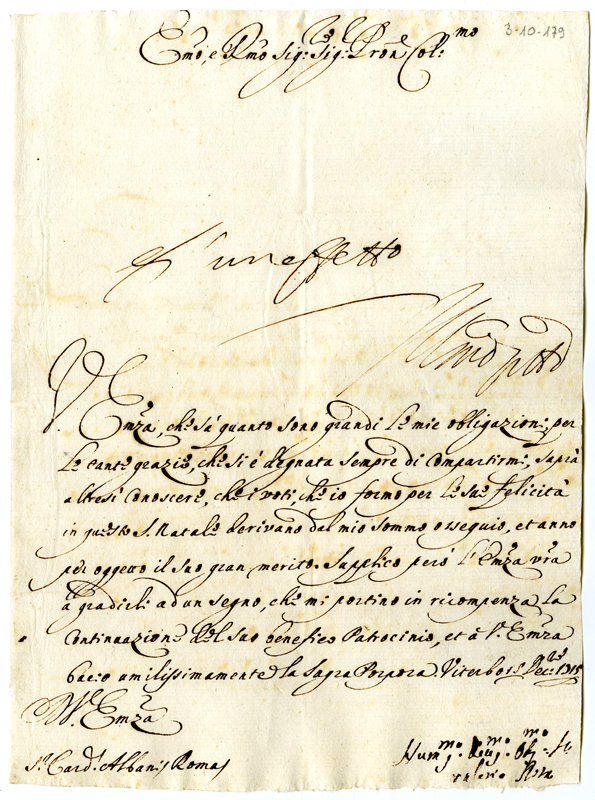 3-10-179
Emo, e Rmo Sig.r Sig.r Pron Col.mo
d'un effetto
V. Emza, che sà quanto sono grandi le mie obligazioni, per
le tante grazie, che si è degnata sempre di compartirmi, saprà
altresì conoscere, che i voti, che io formo per le sue felicità
in questo S. Natale derivano dal mio sommo ossequio, et anno
per oggetto il suo gran merito. Supplico però l'Emza vra
à gradirli ad un segno, che mi portino in ricompenza la
Continuazione del suo benefico Patrocinio, et à V. Emza
bacio umilissimamente la Sagra Porpora. Viterbo Dec.re 1715
Di V. Emza
Sr. Card. Albani Roma
Hum.mo